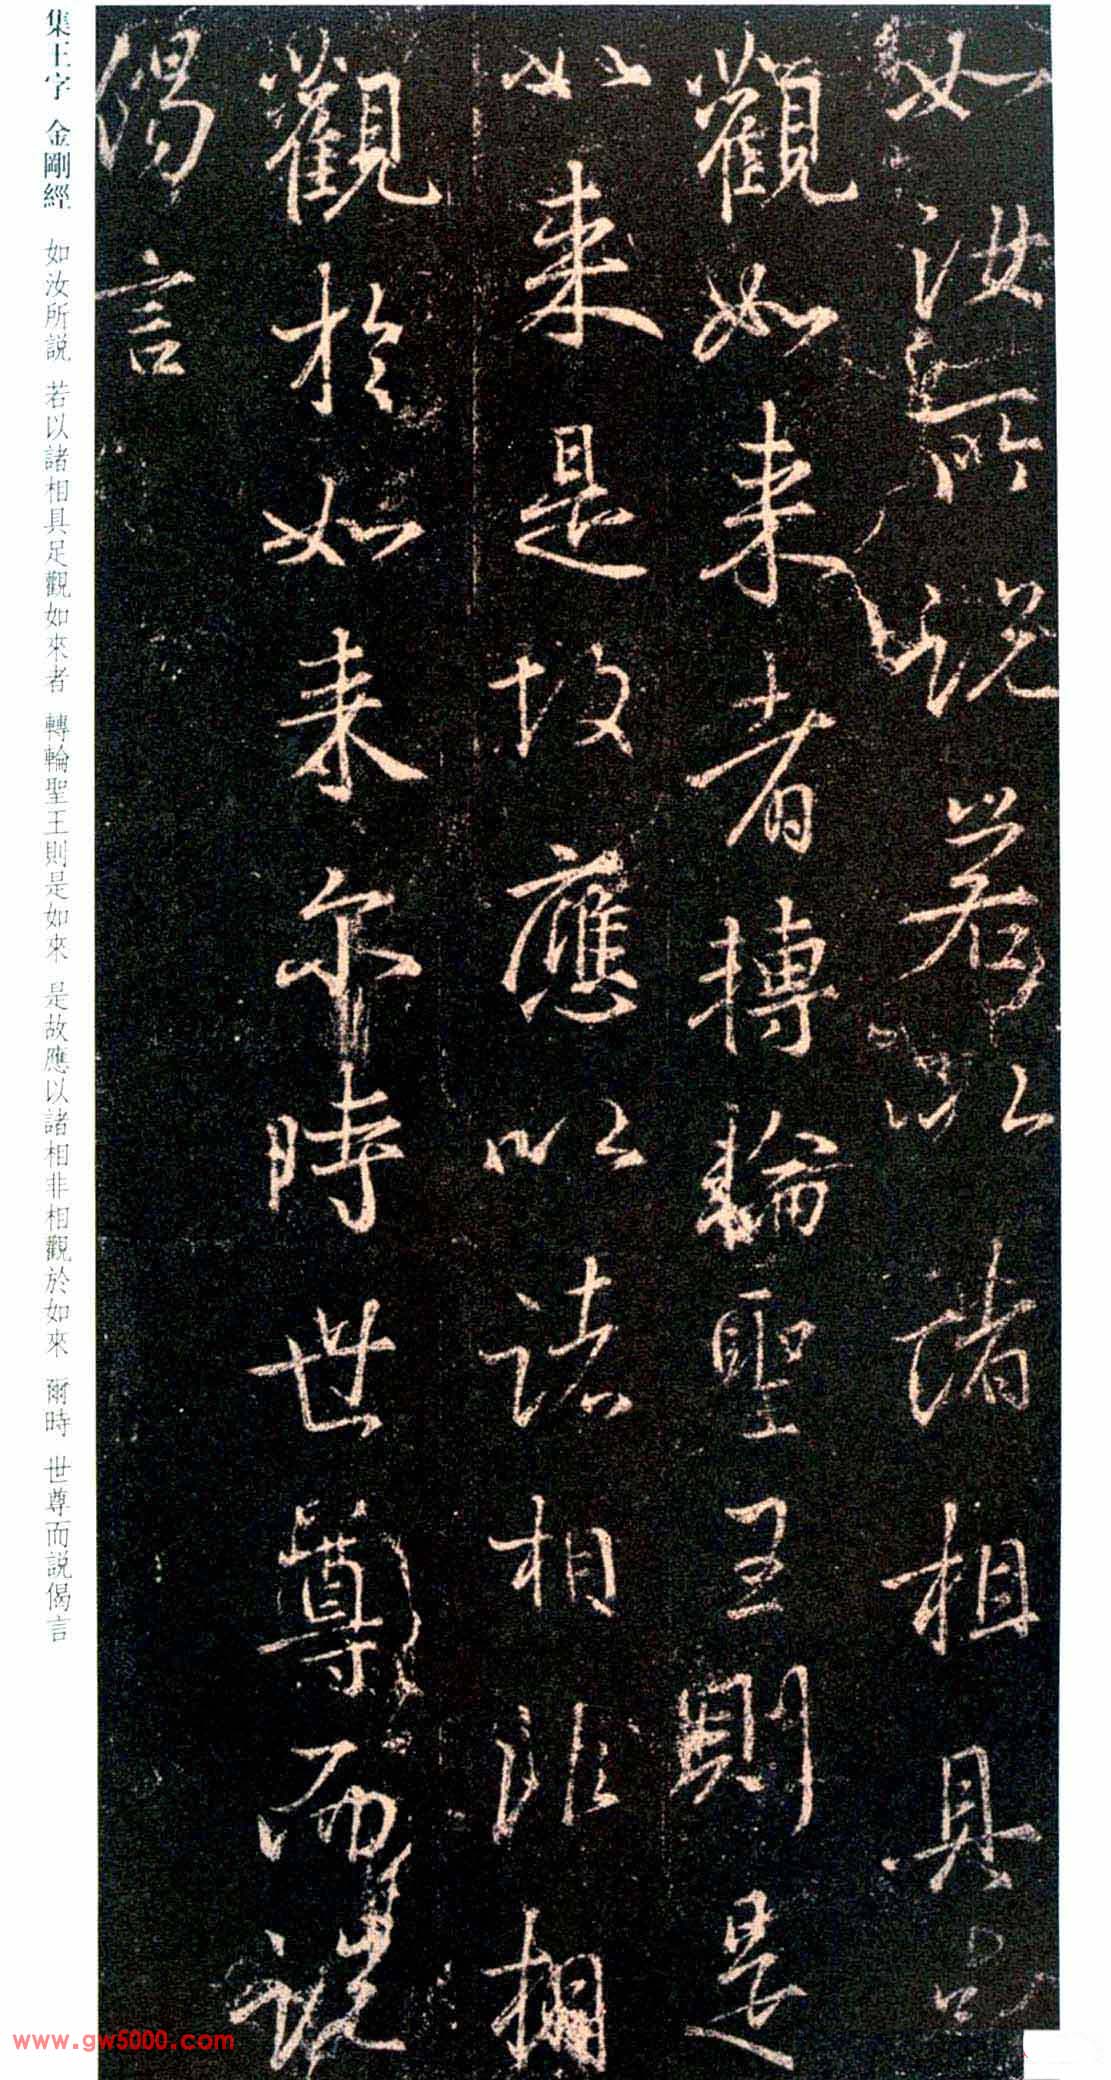 如汝所説若以諸相具足
觀如来者轉輪聖王則是
如来是故應以諸相非相
觀於如来尓時世尊而說
偈言
集王字 金剛經 如汝所説 若以諸相具足觀如來者 轉輪聖王則是如來 是故應以諸相非相觀於如來 爾時 世尊而説偈言
www.gw5000.com